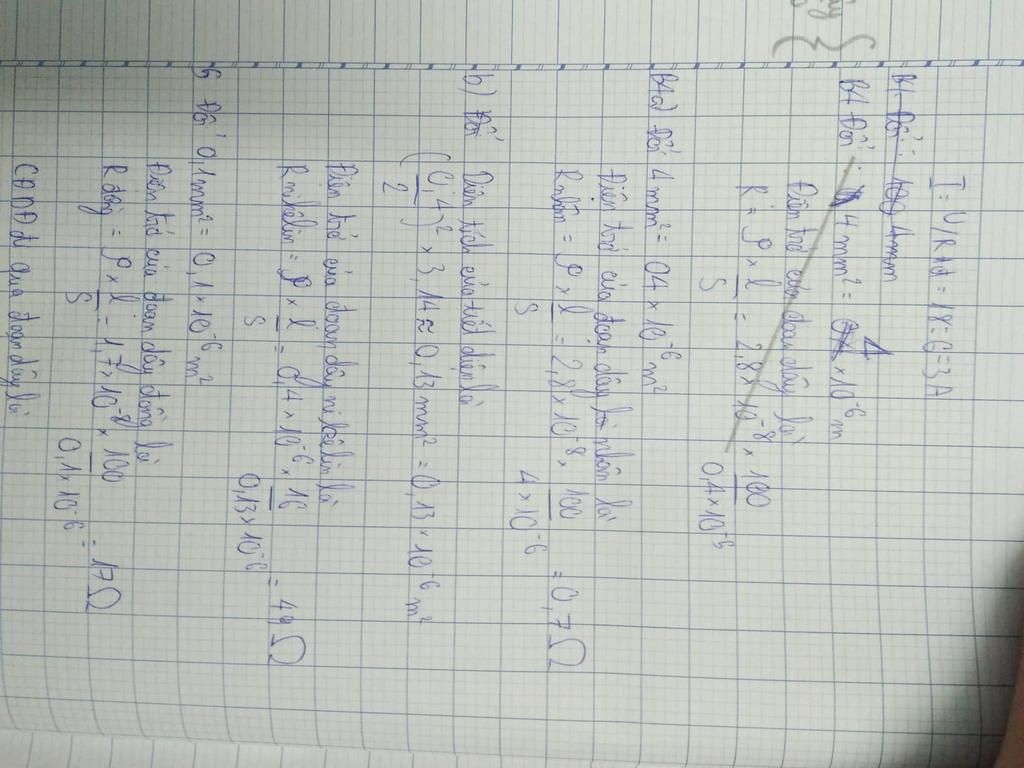 I = U/Rtđ = 18:6=3A
B1 Đổi: 4mm
B1 Đổi: 4mm² = 4 × 10⁻⁶ m
Điện trở của đoạn dây là
R = ρ × l/S = 2,8 × 10⁻⁸ × 100/0,4×10⁻⁶
a) Đổi 4mm² = 04 × 10⁻⁶ m²
Điện trở của đoạn dây nhôm là
Rnhôm = ρ × l/S = 2,8 × 10⁻⁸ × 100/4×10⁻⁶ = 0,7 Ω
b) Diện tích của tiết diện là
(0,4/2)² × 3,14 ≈ 0,13 mm² = 0,13 × 10⁻⁶ m²
Điện trở của đoạn dây nikêlin là
Rnikêlin = ρ × l/S = 0,4 × 10⁻⁶ × 16/0,13×10⁻⁶ = 49 Ω
Đổi 0,1mm² = 0,1 × 10⁻⁶ m²
Điện trở của đoạn dây đồng là
Rđồng = ρ × l/S = 1,7 × 10⁻⁸ × 100/0,1×10⁻⁶ = 17 Ω
CĐDĐ đi qua đoạn dây là